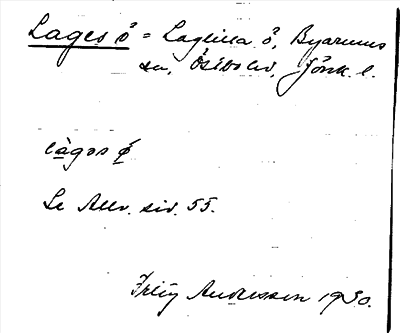 Lages å = Lagerna å, Byarums
sn, Östbo hd, Jönk. l.
làgəs ǿ
Se Allv. sid. 55.
Fritz Andersson 1930.